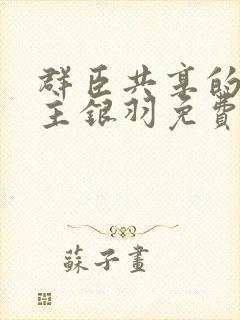 群臣共享的
主銀羽免費
蘇子畫